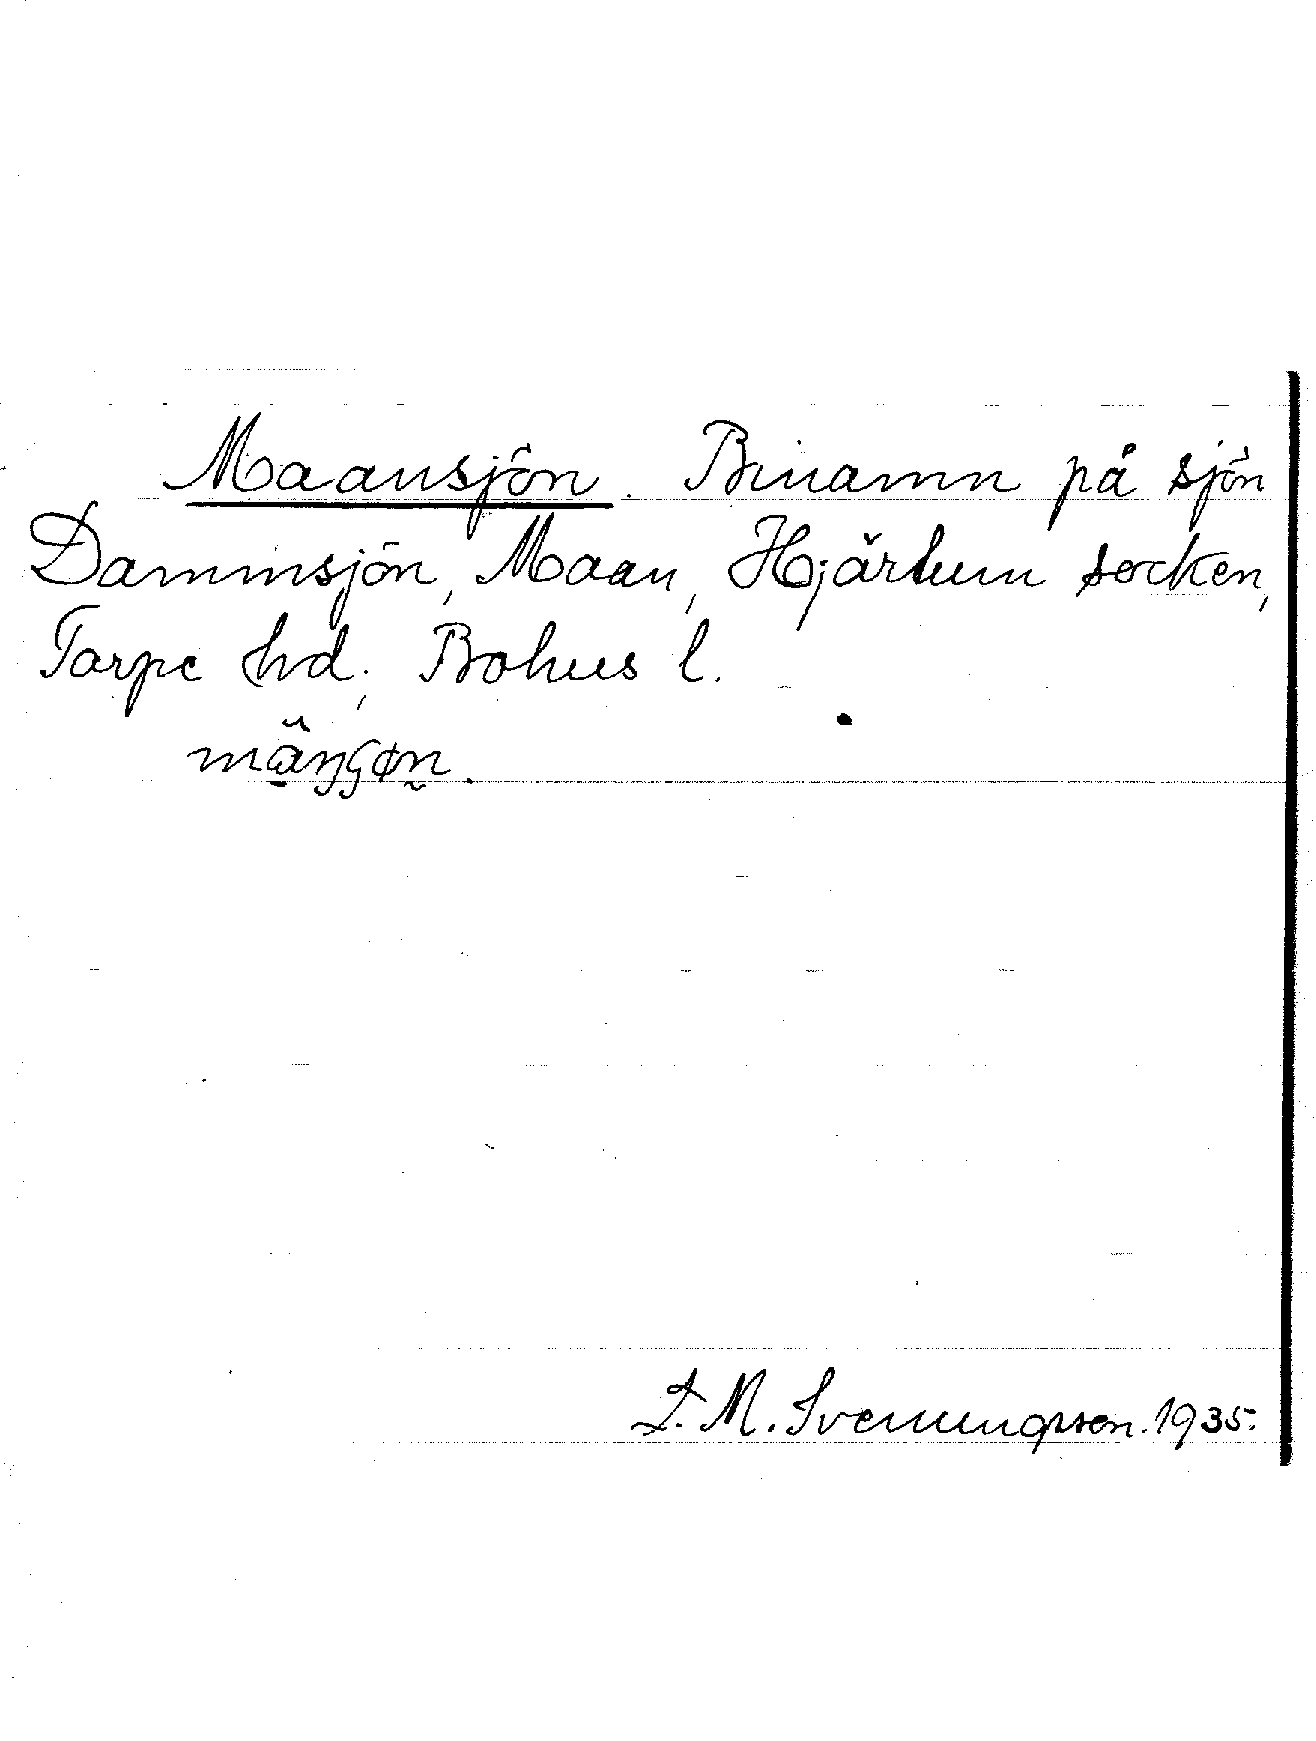 Maansjön. Binamn på sjön
Dammsjön, Maan, Hjärtum socken,
Torpe hd, Bohus l.
L. M. Svenungsson. 1935.